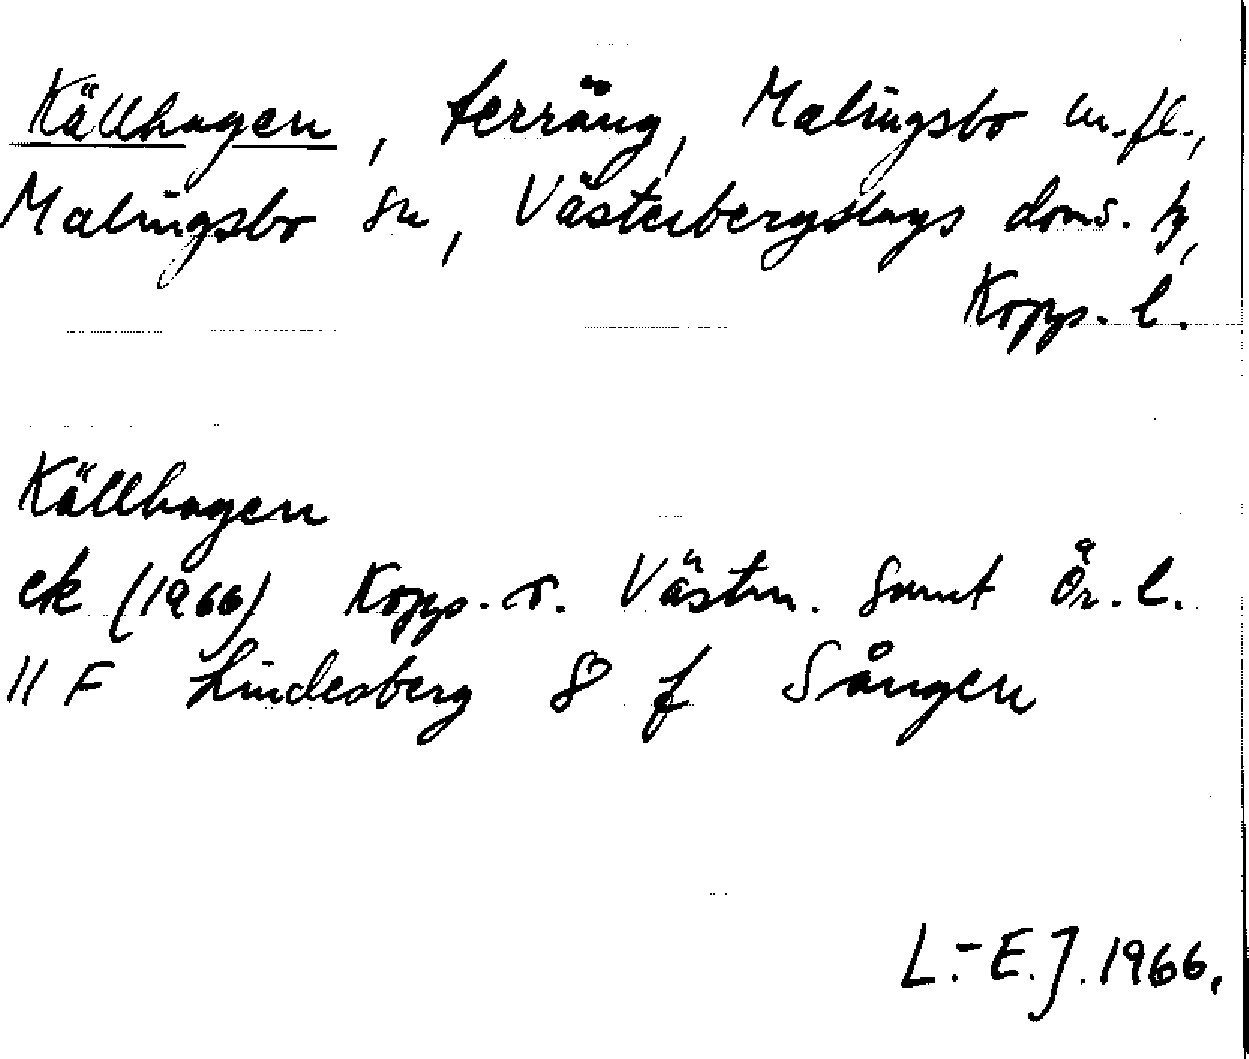 Källhagen, terräng, Malingsbo m.fl.,
Malingsbo sn, Västerbergslags doms. hg,
Kopp. l.
Källhagen
ek (1966) Kopp. o. Västm. samt Ör. l.
11 F Lindesberg SO f Sången
L.-E.J. 1966.